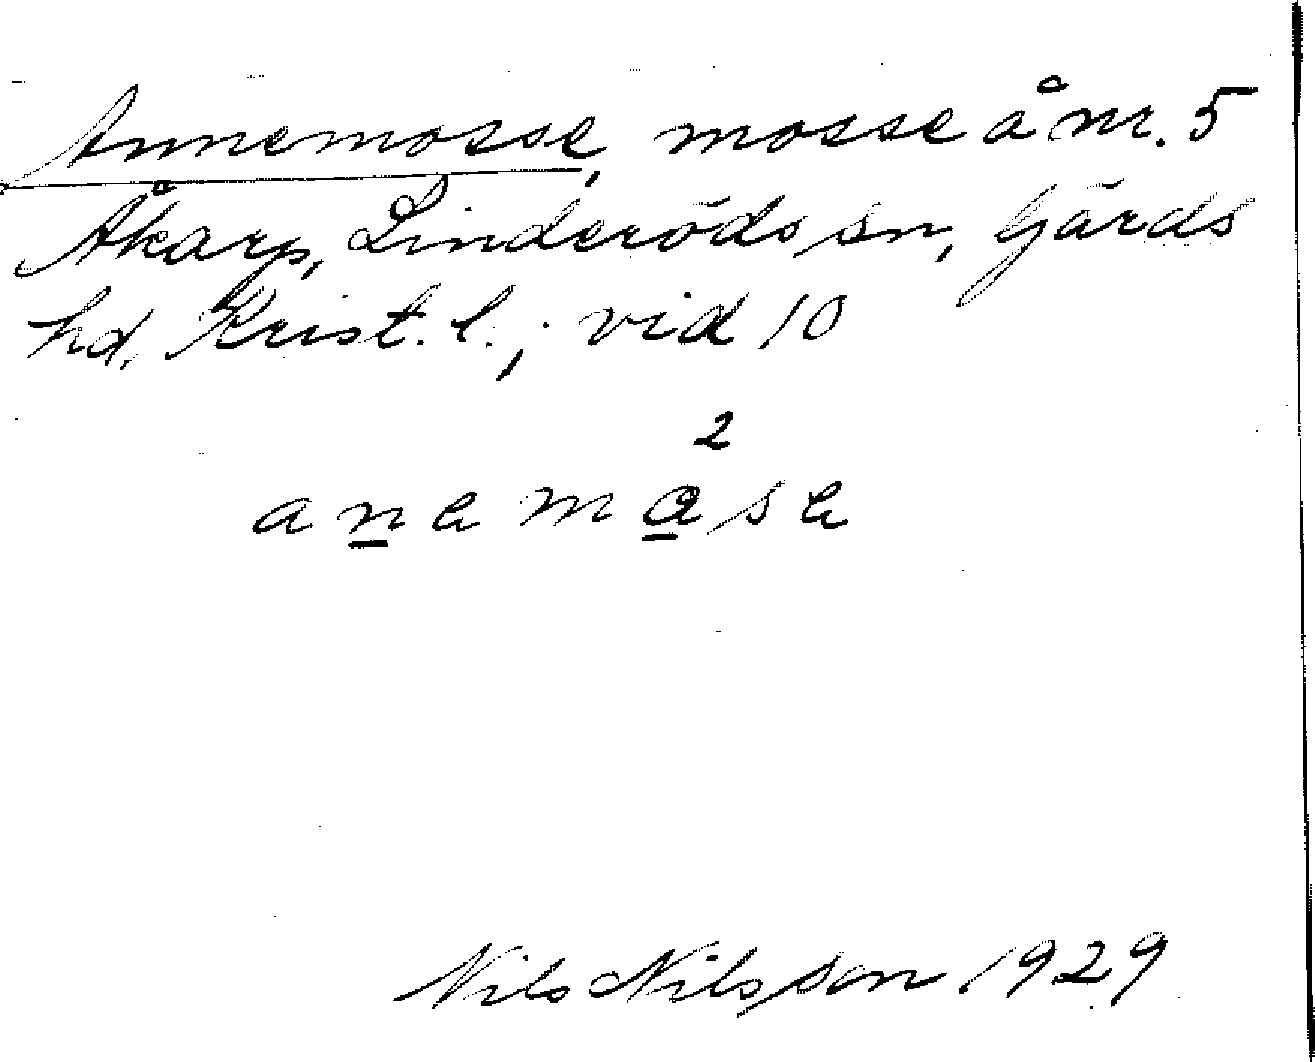 Annemosse, mosse å nr. 5
Åkarp, Linderöds sn, Gärds
hd, Krist. l.; vid 10
2
anemåse
Nils Nilsson 1929